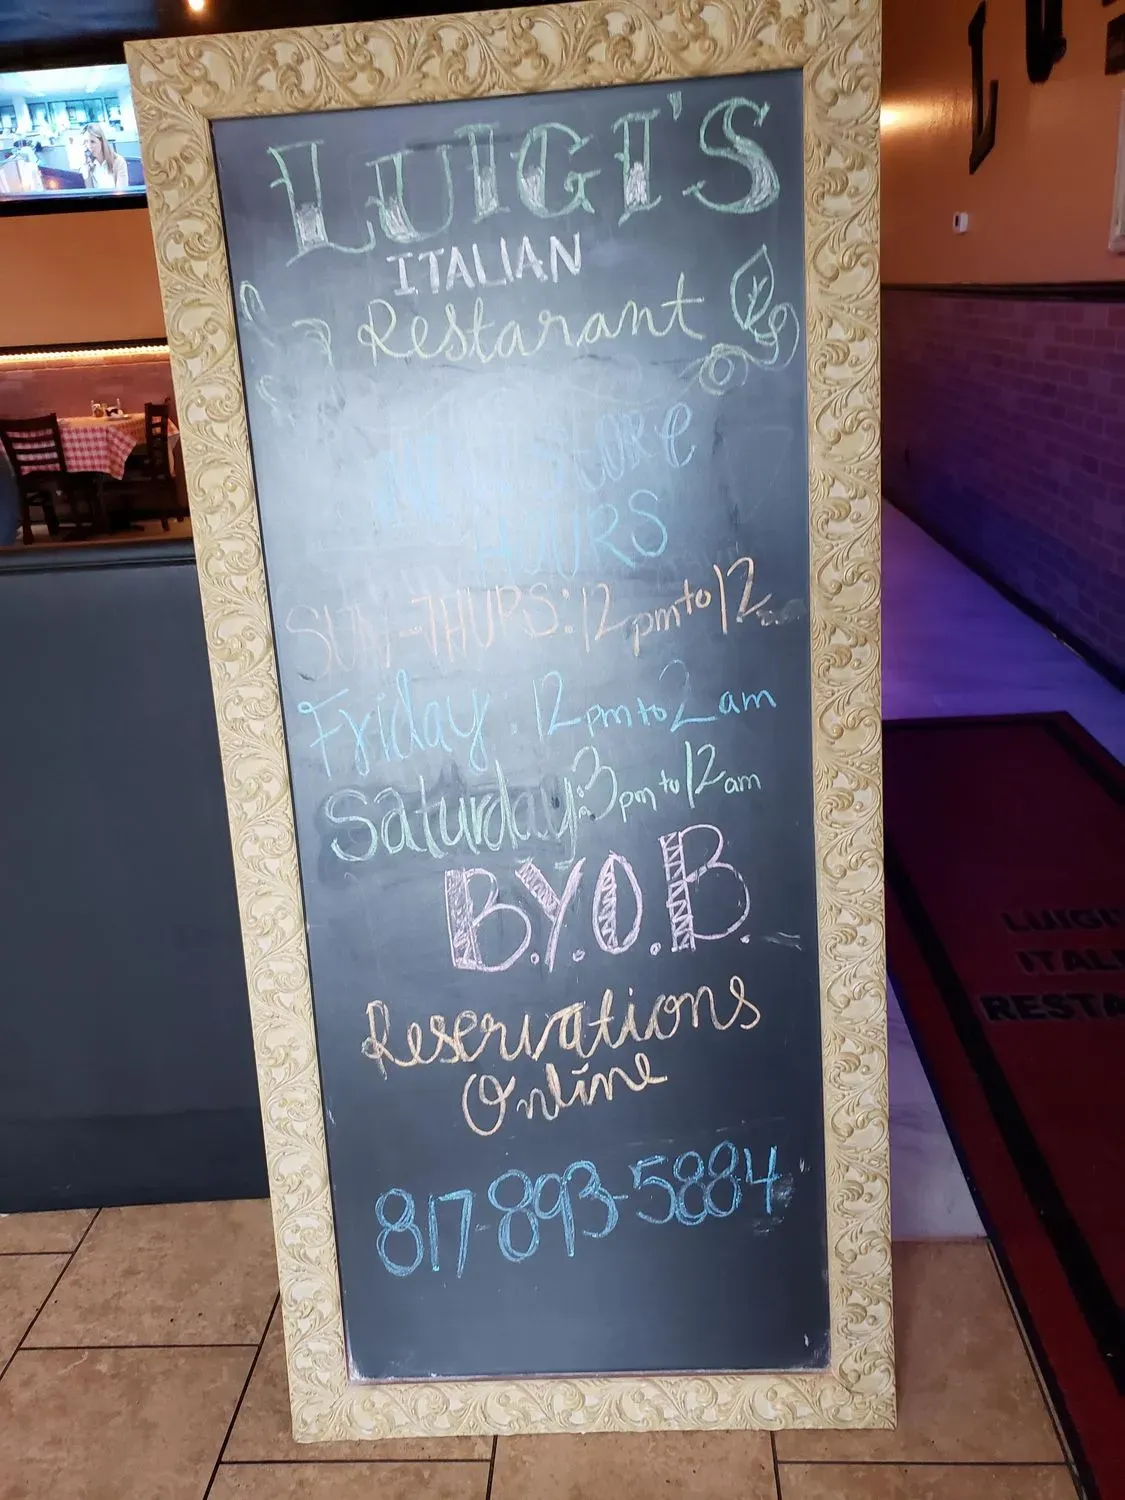 LUIGI'S
ITALIAN
Restarant
New Store
HOURS
SUN-THURS: 12pm to 12
Friday: 12pm to 2am
Saturday: 3pm to 12am
B.Y.O.B.
Reservations
Online
817-893-5884
LUIGI'
ITAL
RESTA